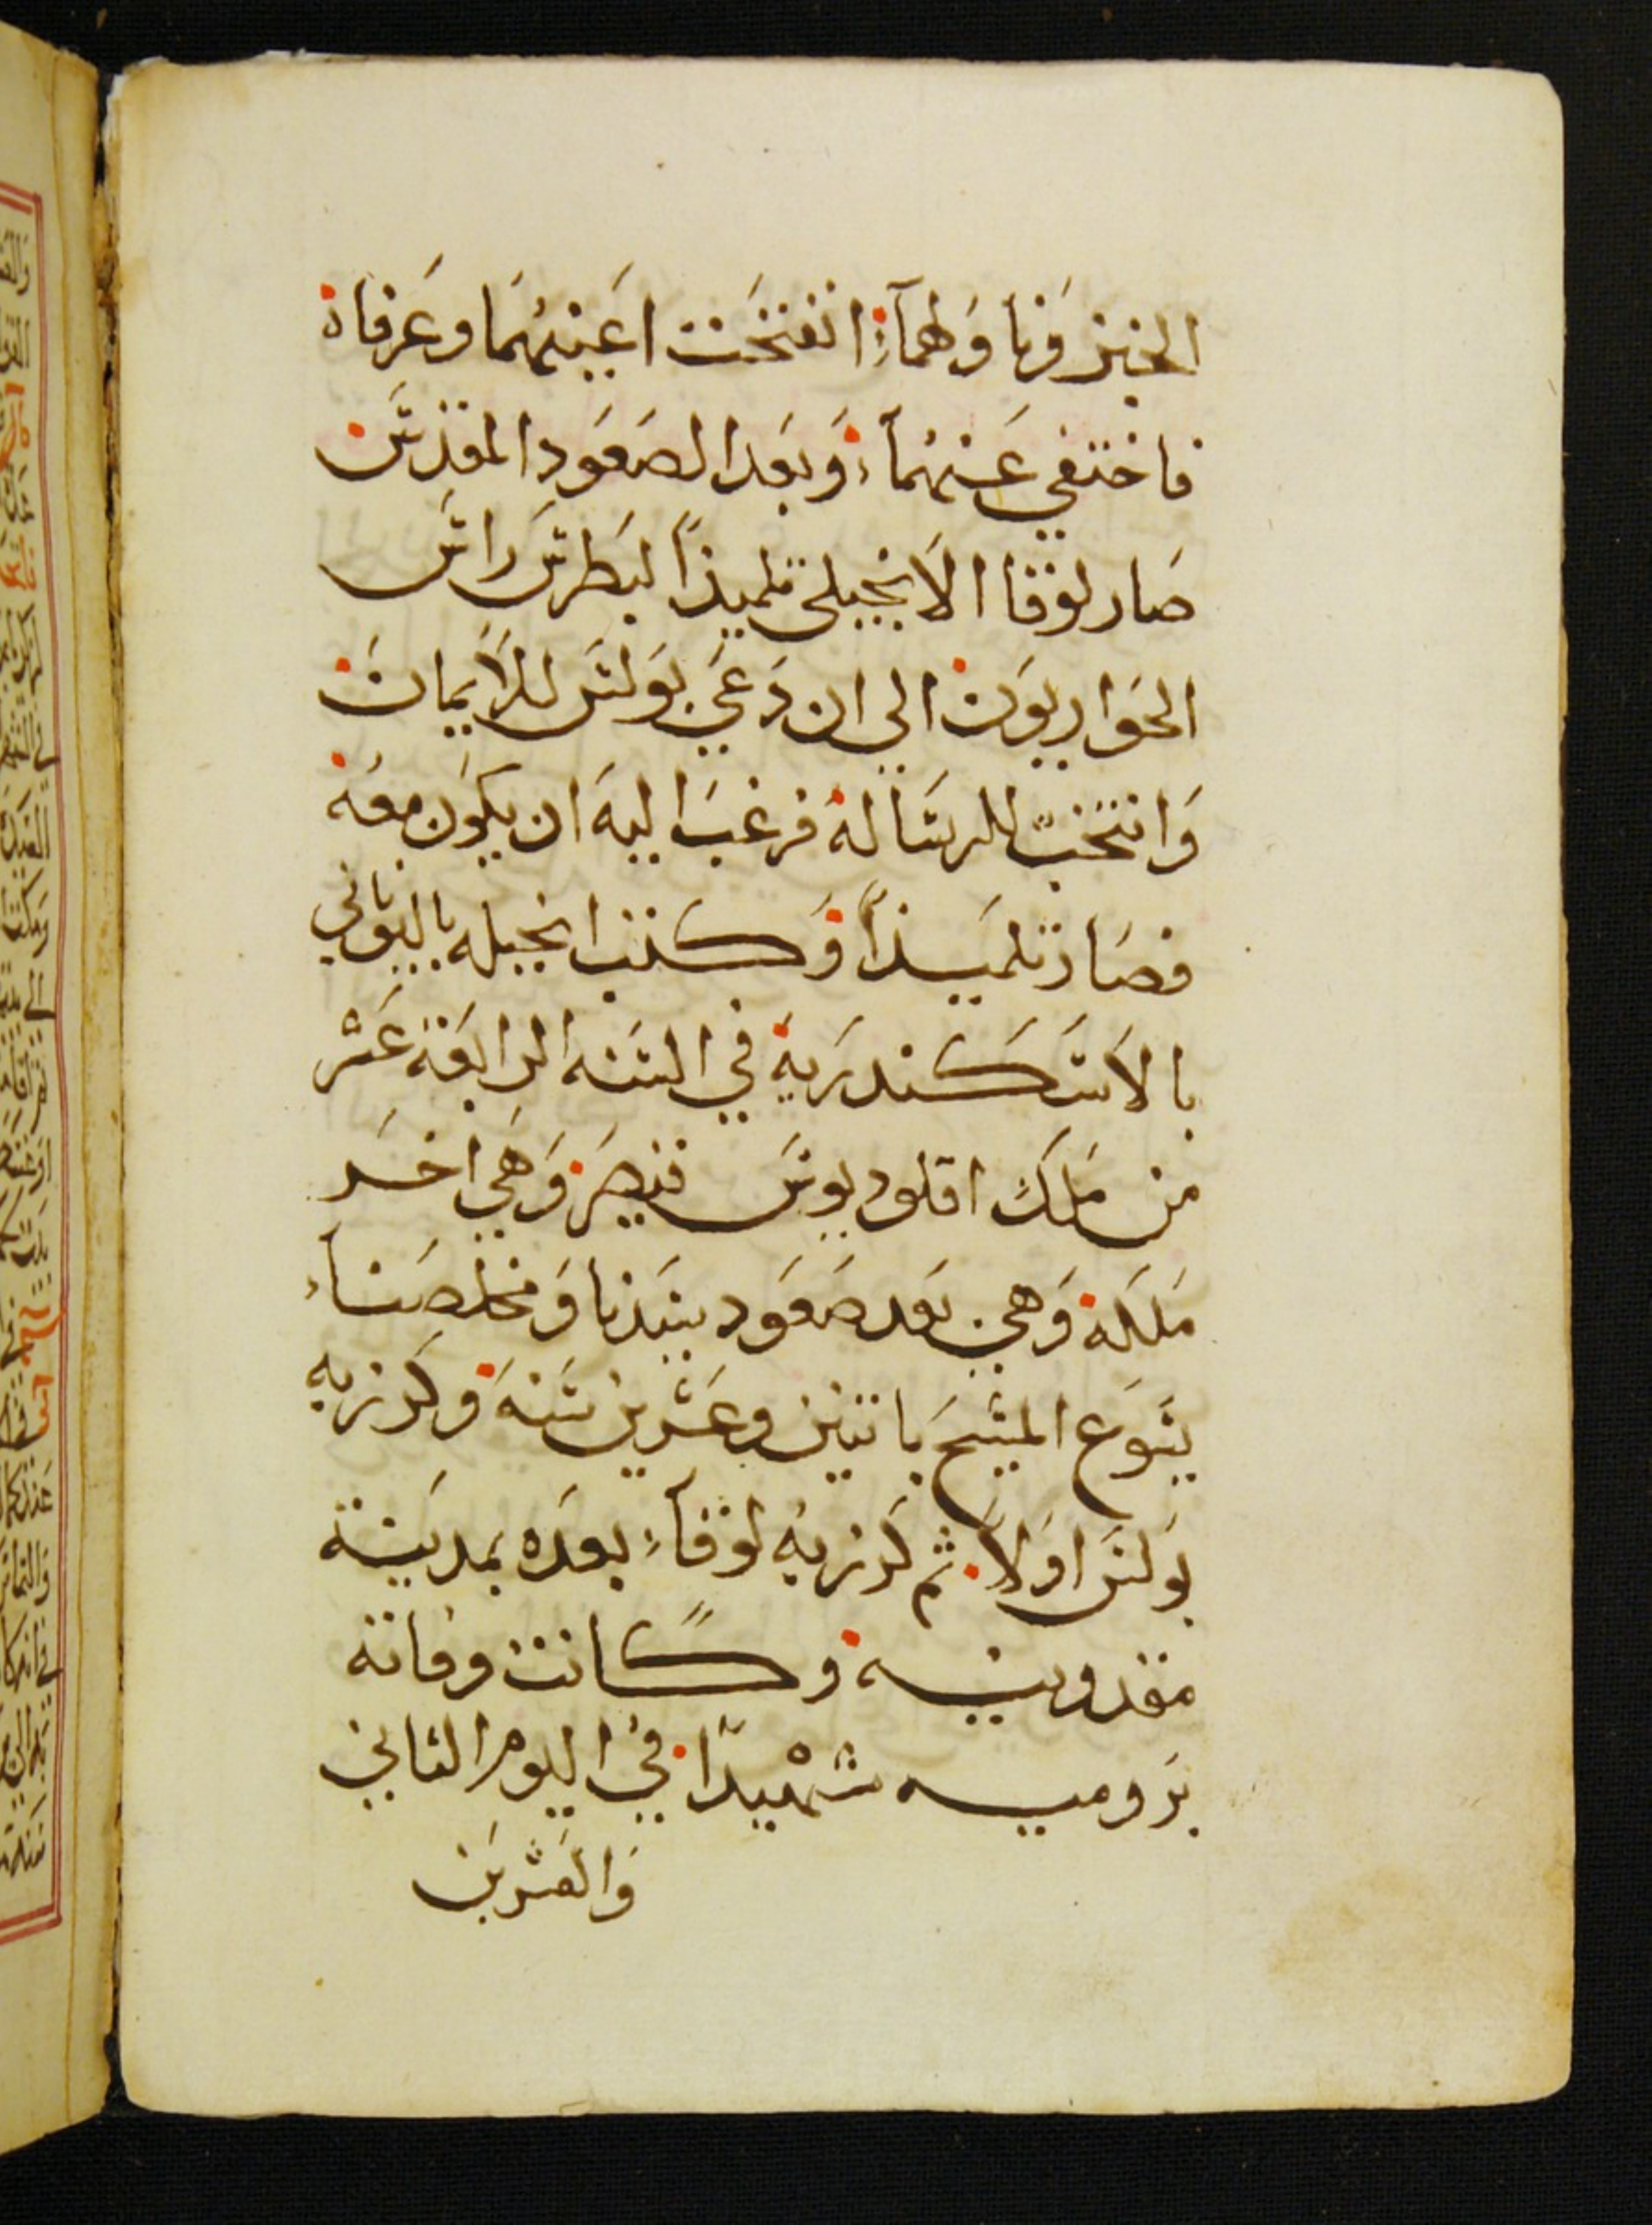 الخبز وناولهما انفتحت اعينهما وعرفاه
فاختفي عنهما وبعد الصعود المقدس
صار لوقا الانجيلي تلميذاً لبطرس راس
الحواريون الي ان دعي بولس للايمان
وانتخب للرساله فرغب اليه ان يكون معه
فصار تلميذاً وكتب انجيله باليوناني
بالاسكندريه في السنه الرابعة عشر
من ملك اقلوديوس قيصر وهي اخر
ملكه وهي بعد صعود سيدنا ومخلصنا
يسوع المسيح باثنين وعشرين سنه وكرز به
بولس اولا ثم كرز به لوقا بعده بمدينة
مقدونيه وكانت وفاته
بروميه شهيدًا في اليوم الثاني
والعشرين